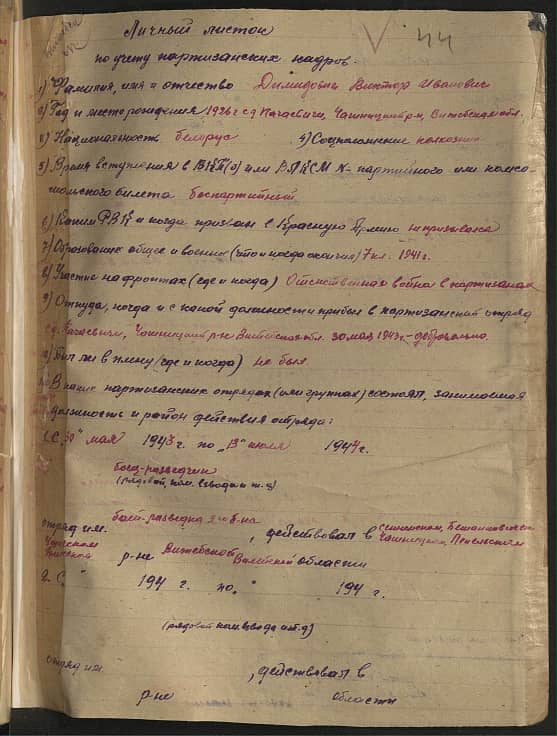 44
Личный листок
по учету партизанских кадров.
1) Фамилия, имя и отчество Димидович Виктор Иванович
2) Год и место рождения 1926 г с.д. Пачаевичи, Чашницкий р-н, Витебская обл.
3) Национальность белорус 4) Соцположение колхозник
5) Время вступления в ВКП(б) или ВЛКСМ №-партийного или комсо-
мольского билета беспартийный
6) Каким РВК и когда призван в Красную Армию не призывался
7) Образование общее и военное (что и когда окончил) 7 кл. 1941 г.
8) Участие на фронтах (где и когда) Отечественная война в партизанах
9) Откуда, когда и с какой должности прибыл в партизанский отряд
с.д. Чашницкий р-н Витебская обл. 30 мая 1943 г. - добровольно
10) Был ли в плену (где и когда) не был
11) В каких партизанских отрядах (или группах) состоял, занимаемая
должность и район действия отряда:
1. С "30" мая 1943 г. по "13" июля 1944 г.
боец-разведчик
(рядовой, ком. взвода и т.д)
отряд им. , действовал в Сенненском, Бешенковичском
Чашницком, Лепельском
р-не Витебской Вилейской области
2. С " 194 г. по " 194 г.
(рядовой ком. взвода и т.д)
отряд им. , действовал в
р-не области